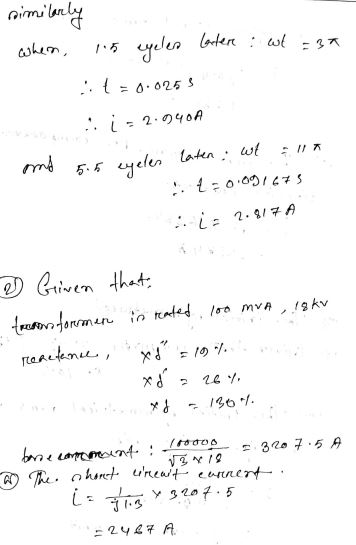 similarly
when, 1.5 cycles later : wt = 3π
∴ t = 0.025 s
∴ i = 2.940A
and 5.5 cycles later : wt = 11π
∴ t = 0.09167 s
∴ i = 2.817 A
② Given that,
transformer is rated, 100 MVA, 18 kv
reactance, xd'' = 19 %.
xd' = 26 %.
xd = 130 %.
base current : 100000 / √3 × 18 = 3207.5 A
ⓐ The short circuit current.
i = 1 / 1.3 × 3207.5
= 2467 A